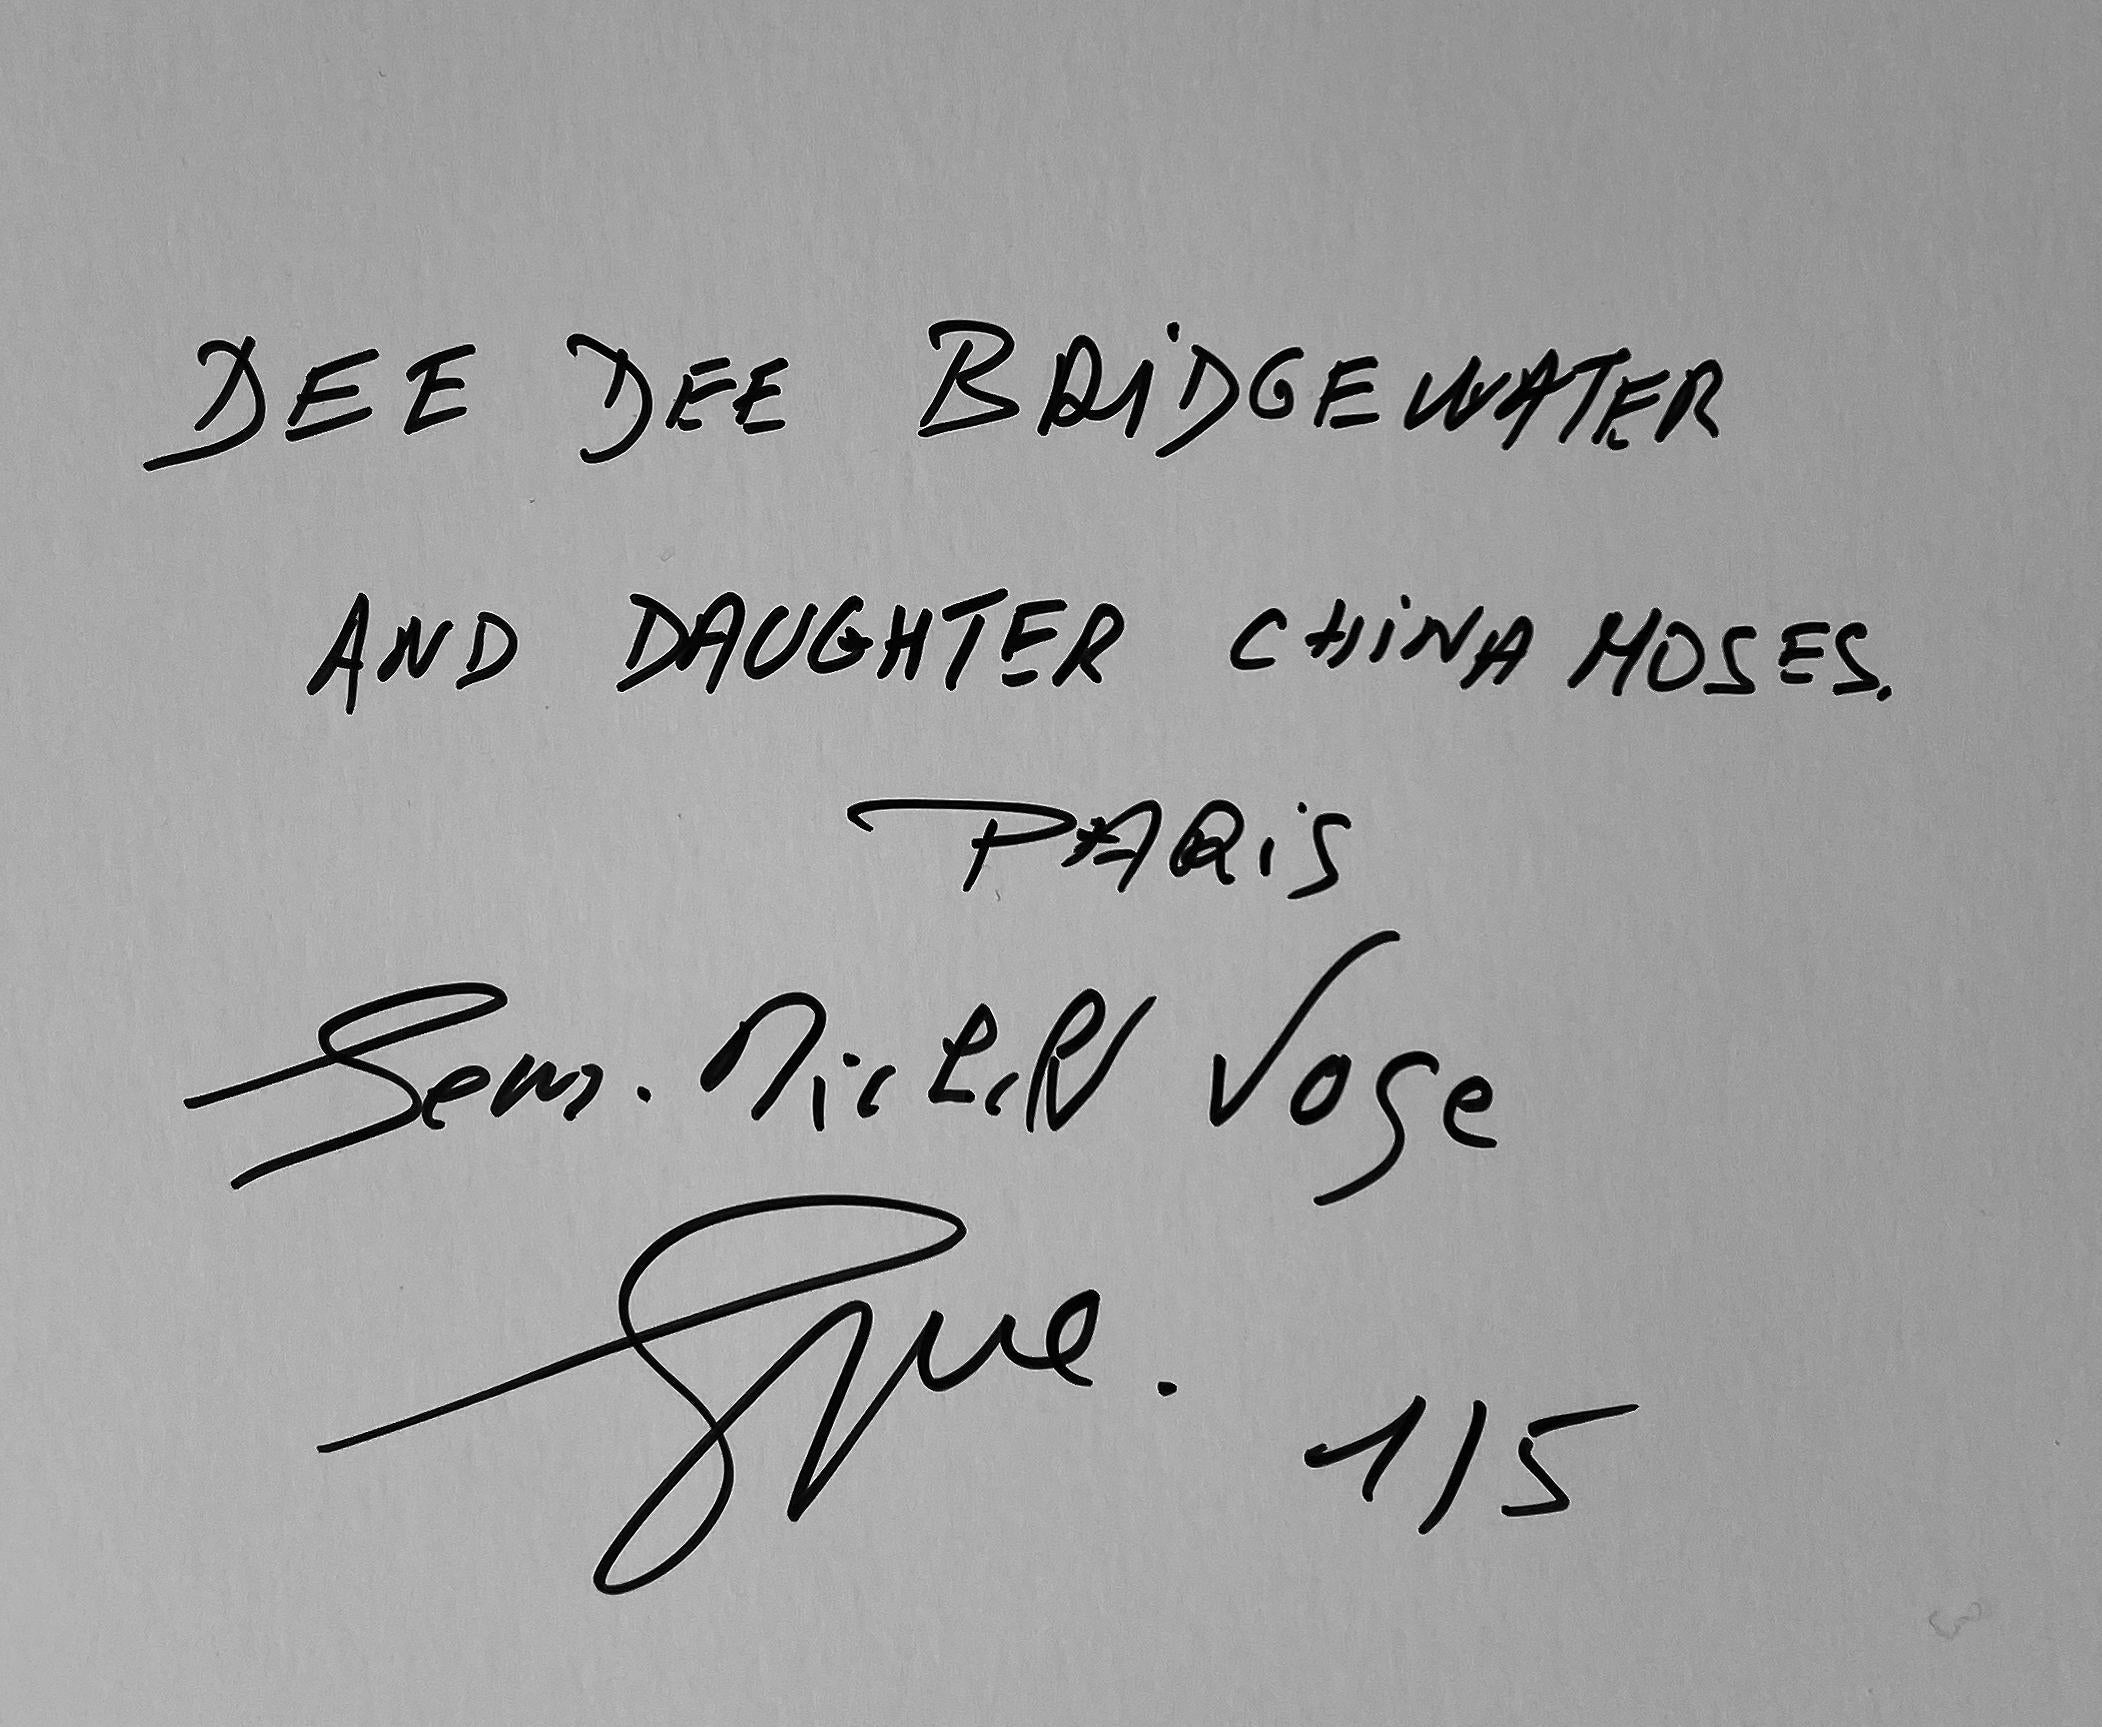 DEE DEE BRiDGEWATER
AND DAUGHTER CHiNA MOSES.
PARiS
Jean.Michel Voge
1/5